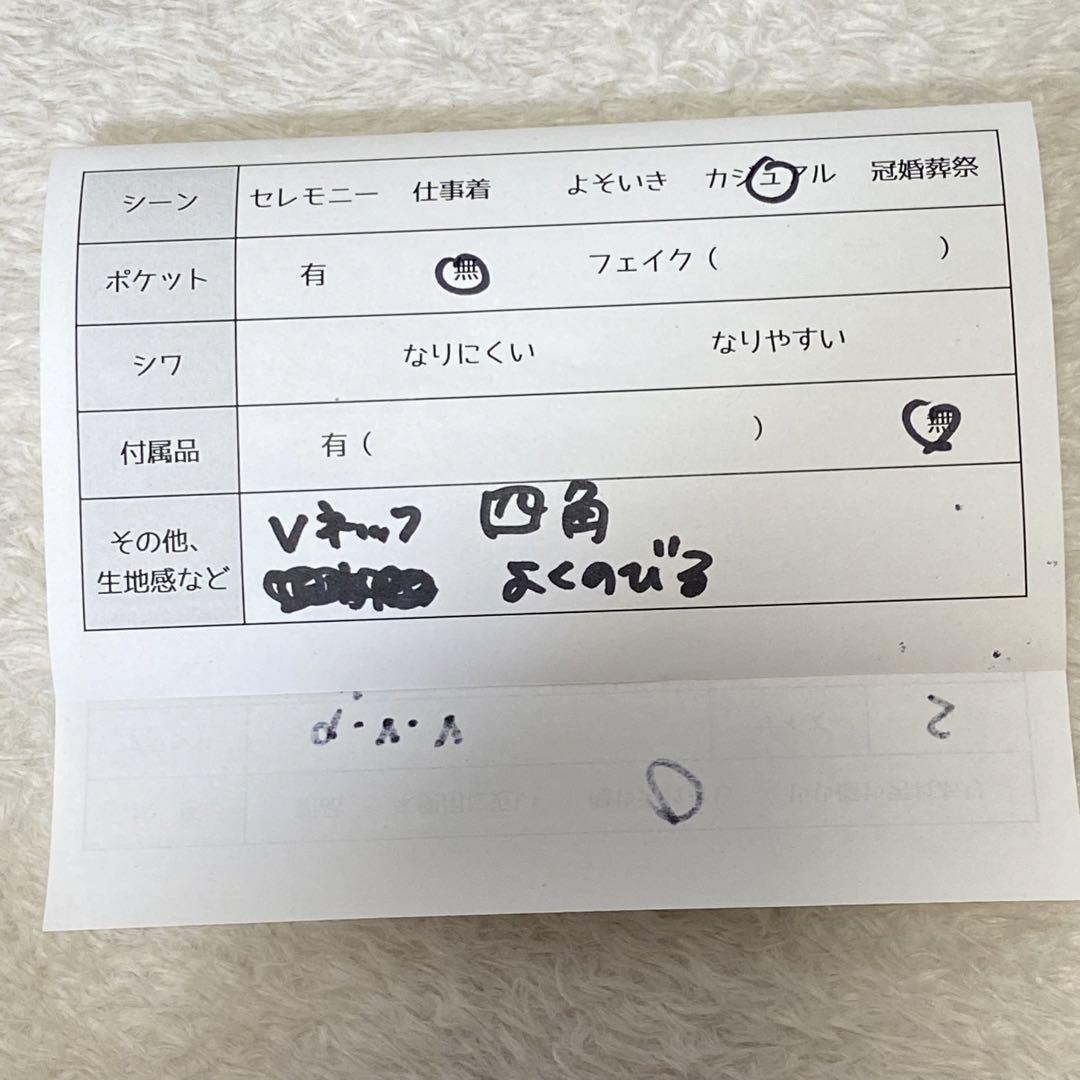 シーン セレモニー 仕事着 よそいき カジュアル 冠婚葬祭
ポケット 有 無 フェイク ( )
シワ なりにくい なりやすい
付属品 有 ( ) 無
その他、
生地感など
Vネック 四角
よくのびる